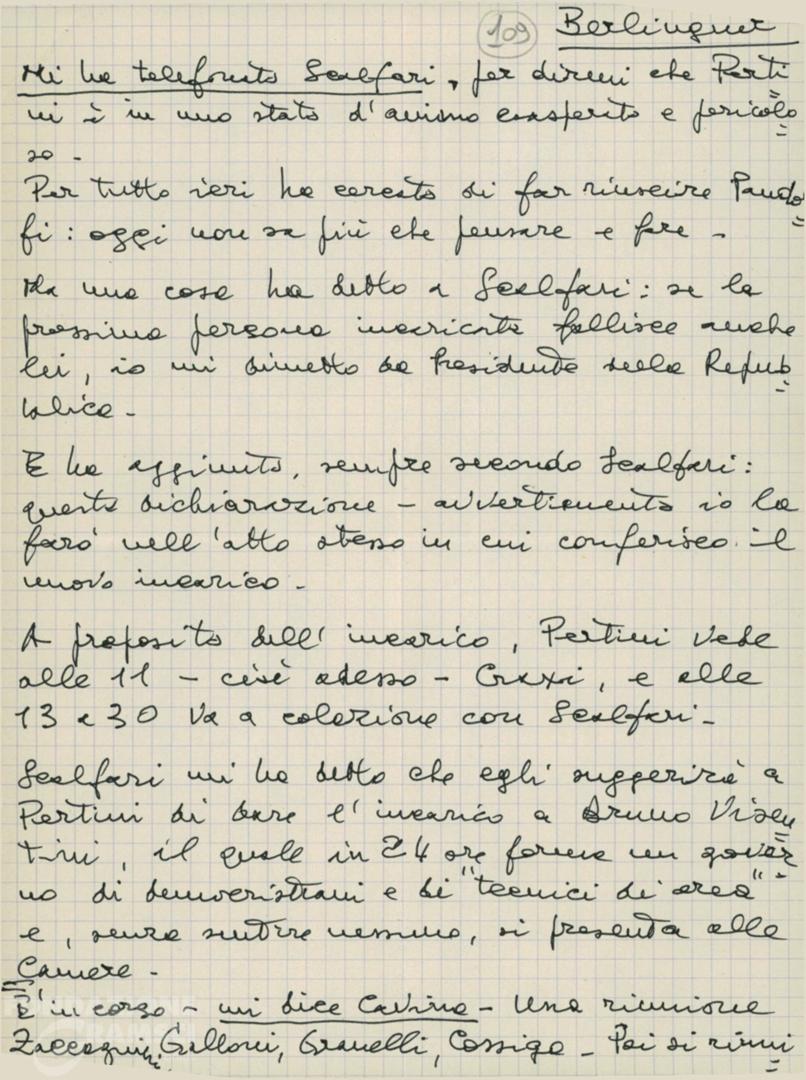 109 Berlinguer
Mi ha telefonato Scalfari, per dirmi che Perti=
ni è in uno stato d'animo esasperato e pericolo=
so -
Per tutto ieri ha cercato di far riuscire Pando=
fi: oggi non sa più che pensare e fare -
Ma una cosa ha detto a Scalfari: se la
prossima persona incaricata fallisce anche
lei, io mi dimetto da Presidente della Repub=
blica -
E ha aggiunto, sempre secondo Scalfari:
questa dichiarazione - avvertimento io la
farò nell'atto stesso in cui conferisco il
nuovo incarico -
A proposito dell'incarico, Pertini vede
alle 11 - cioè adesso - Craxi, e alle
13 e 30 va a colazione con Scalfari -
Scalfari mi ha detto che egli suggerirà a
Pertini di dare l'incarico a Bruno Visen=
tini, il quale in 24 ore forma un gover=
no di democristiani e di "tecnici di area"
e, senza sentire nessuno, si presenta alle
Camere -
E' in corso - mi dice Cavina - una riunione
Zaccagnini, Galloni, Granelli, Cossiga - Poi si riuni=